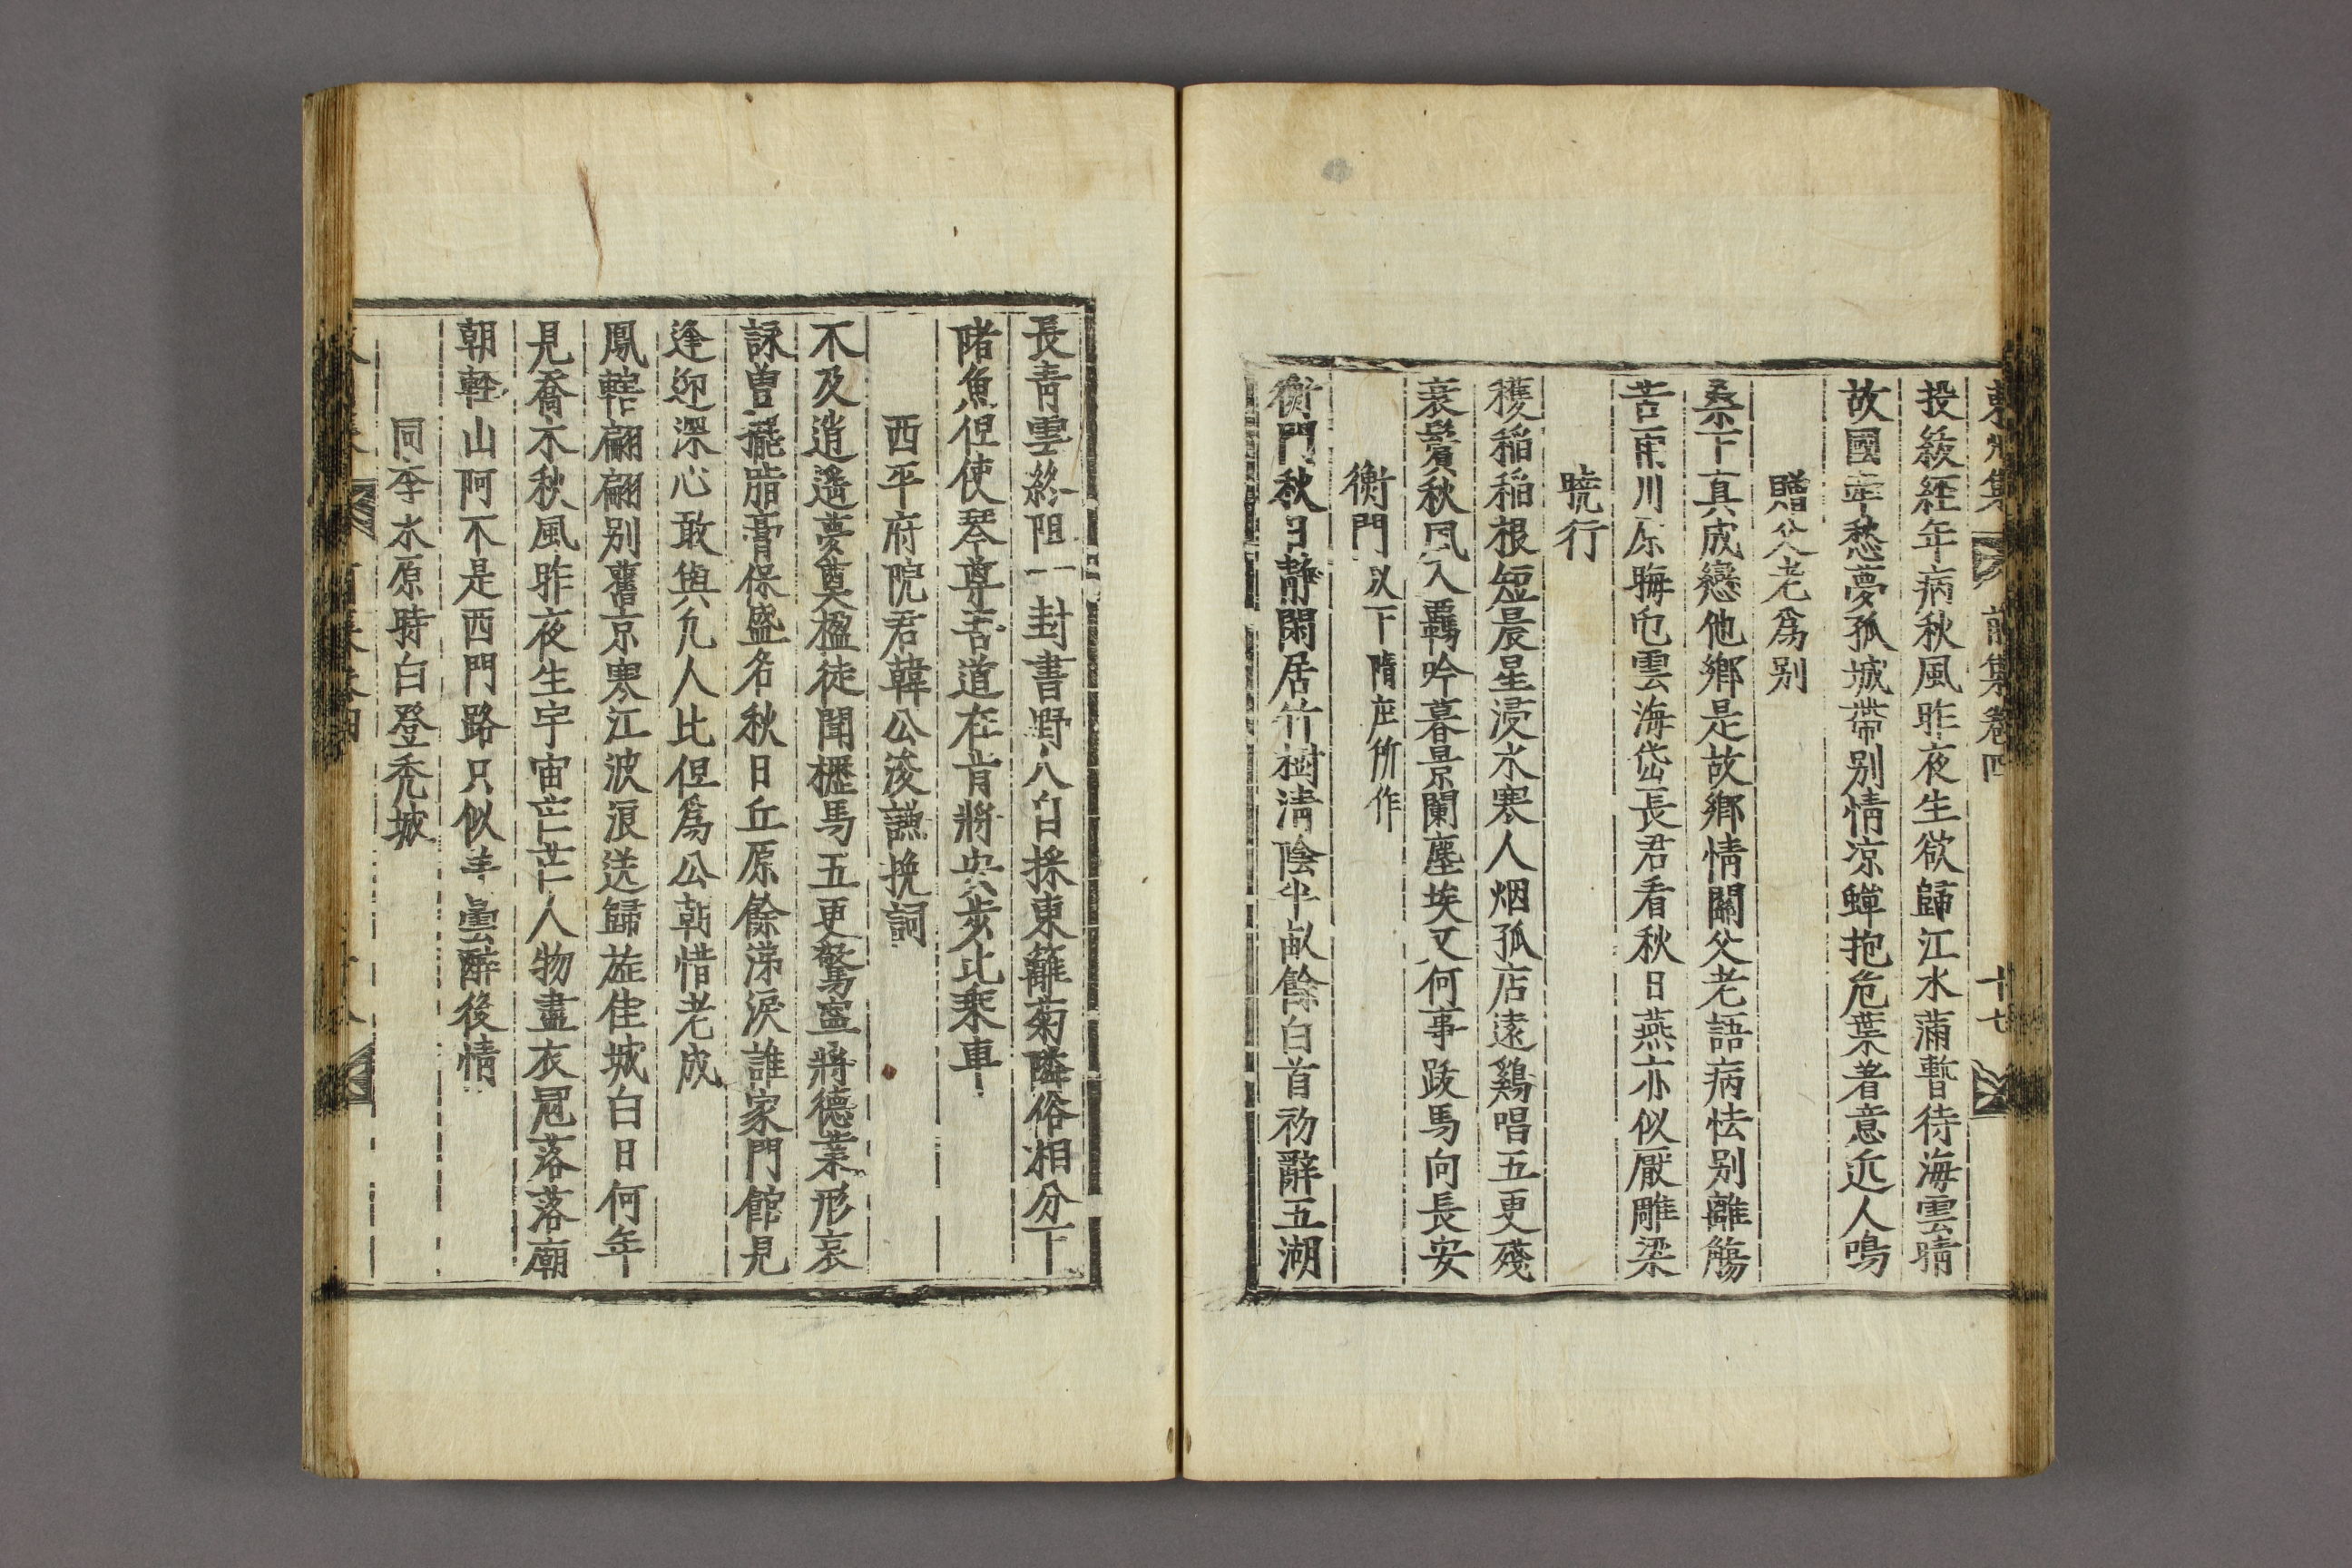 東州集 前集卷四 十七
投紱經年病秋風昨夜生欲歸江水滿暫待海雲晴
故國牽愁夢孤城帶別情凉蟬抱危葉着意近人鳴
贈父老爲別
桑下真成戀他鄉是故鄉情關父老語病怯別離觴
苦雨川原晦屯雲海岱長君看秋日燕亦似厭雕梁
曉行
穫稲稲根短晨星浸水寒人烟孤店遠鷄唱五更殘
衰鬢秋風入羈吟暮景闌塵埃又何事跋馬向長安
衡門以下隋庄所作
衡門秋日靜閑居竹樹淸陰半畝餘白首初辭五湖
長靑雲終阻一封書野人自採東籬菊隣俗相分下
陼魚但使琴尊吾道在肯將安步比乘車
西平府院君韓公浚謙挽詞
不及逍遙夢奠楹徒聞櫪馬五更驚寧將德業形哀
詠曽脱脂膏保盛名秋日丘原餘涕淚誰家門館見
逢迎深心敢與凡人比但爲公朝惜老成
鳳轄翩翩別舊京寒江波浪送歸旌佳城白日何年
見喬木秋風昨夜生宇宙茫茫人物盡衣冠落落廟
朝輕山阿不是西門路只似羊曇醉後情
同李水原時白登禿城